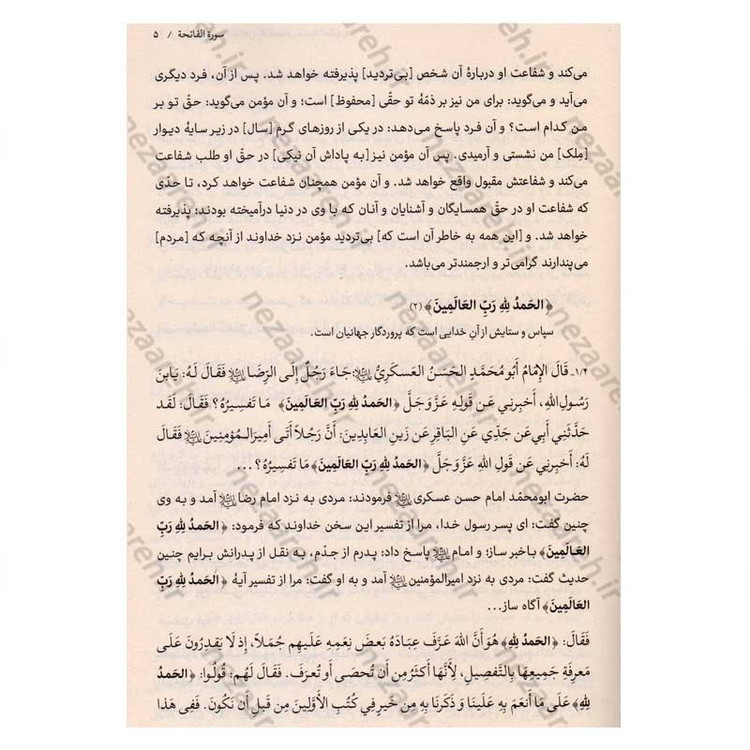 سورة الفاتحة / ۵
می‌کند و شفاعت او دربارهٔ آن شخص [بی‌تردید] پذیرفته خواهد شد. پس از آن، فرد دیگری
می‌آید و می‌گوید: برای من نیز بر ذمّهٔ تو حقّی [محفوظ] است؛ و آن مؤمن می‌گوید: حق تو بر
من کدام است؟ و آن فرد پاسخ می‌دهد: در یکی از روزهای گرم [سال] در زیر سایهٔ دیوار
[مِلک] من نشستی و آرمیدی. پس آن مؤمن نیز [به پاداش آن نیکی] در حقّ او طلب شفاعت
می‌کند و شفاعتش مقبول واقع خواهد شد. و آن مؤمن همچنان شفاعت خواهد کرد، تا حدّی
که شفاعت او در حقّ همسایگان و آشنایان و آنان که با وی در دنیا درآمیخته بودند؛ پذیرفته
خواهد شد. و [این همه به خاطر آن است که] بی‌تردید مؤمن نزد خداوند از آنچه که [مردم]
می‌پندارند گرامی‌تر و ارجمندتر می‌باشد.
﴿الحَمدُ لِلّهِ رَبِّ العَالَمِینَ﴾ (۲)
سپاس و ستایش از آنِ خدایی است که پروردگار جهانیان است.
۱/۲ـ قَالَ الإمَامُ أَبُو مُحَمَّدٍ الحَسَنُ العَسکَرِيُّ ﷺ: جَاءَ رَجُلٌ إلَی الرِّضَا ﷺ فَقَالَ لَهُ: یَابنَ
رَسُولِ اللهِ، أَخبِرنِي عَن قَولِهِ عَزَّ وَ جَلَّ ﴿الحَمدُ لِلّهِ رَبِّ العَالَمِینَ﴾ مَا تَفسِیرُهُ؟ فَقَالَ: لَقَد
حَدَّثَنِي أَبِي عَن جَدِّي عَنِ البَاقِرِ عَن زَینِ العَابِدِینَ: أَنَّ رَجُلاً أَتَی أَمِیرَ المُؤمِنِینَ ﷺ فَقَالَ
لَهُ: أَخبِرنِي عَن قَولِ اللهِ عَزَّ وَ جَلَّ ﴿الحَمدُ لِلّهِ رَبِّ العَالَمِینَ﴾ مَا تَفسِیرُهُ؟...
حضرت ابومحمّد امام حسن عسکری ﷺ فرمودند: مردی به نزد امام رضا ﷺ آمد و به وی
چنین گفت: ای پسر رسول خدا، مرا از تفسیر این سخن خداوند که فرمود: ﴿الحَمدُ لِلّهِ رَبِّ
العَالَمِینَ﴾ باخبر ساز؛ و امام ﷺ پاسخ داد: پدرم از جدّم، به نقل از پدرانش برایم چنین
حدیث گفت: مردی به نزد امیرالمؤمنین ﷺ آمد و به او گفت: مرا از تفسیر آیهٔ ﴿الحَمدُ لِلّهِ رَبِّ
العَالَمِینَ﴾ آگاه ساز...
فَقَالَ: ﴿الحَمدُ لِلّهِ﴾ هُوَ أَنَّ اللهَ عَرَّفَ عِبَادَهُ بَعضَ نِعَمِهِ عَلَیهِم جُمَلاً، إذ لَا یَقدِرُونَ عَلَی
مَعرِفَةِ جَمِیعِهَا بِالتَّفصِیلِ، لِأَنَّهَا أَکثَرُ مِن أَن تُحصَی أَو تُعرَفَ. فَقَالَ لَهُم: قُولُوا: ﴿الحَمدُ
لِلّهِ﴾ عَلَی مَا أَنعَمَ بِهِ عَلَینَا وَ ذَکَرَنَا بِهِ مِن خَیرٍ فِي کُتُبِ الأَوَّلِینَ مِن قَبلِ أَن نَکُونَ. فَفِي هَذَا
nezaareh.ir